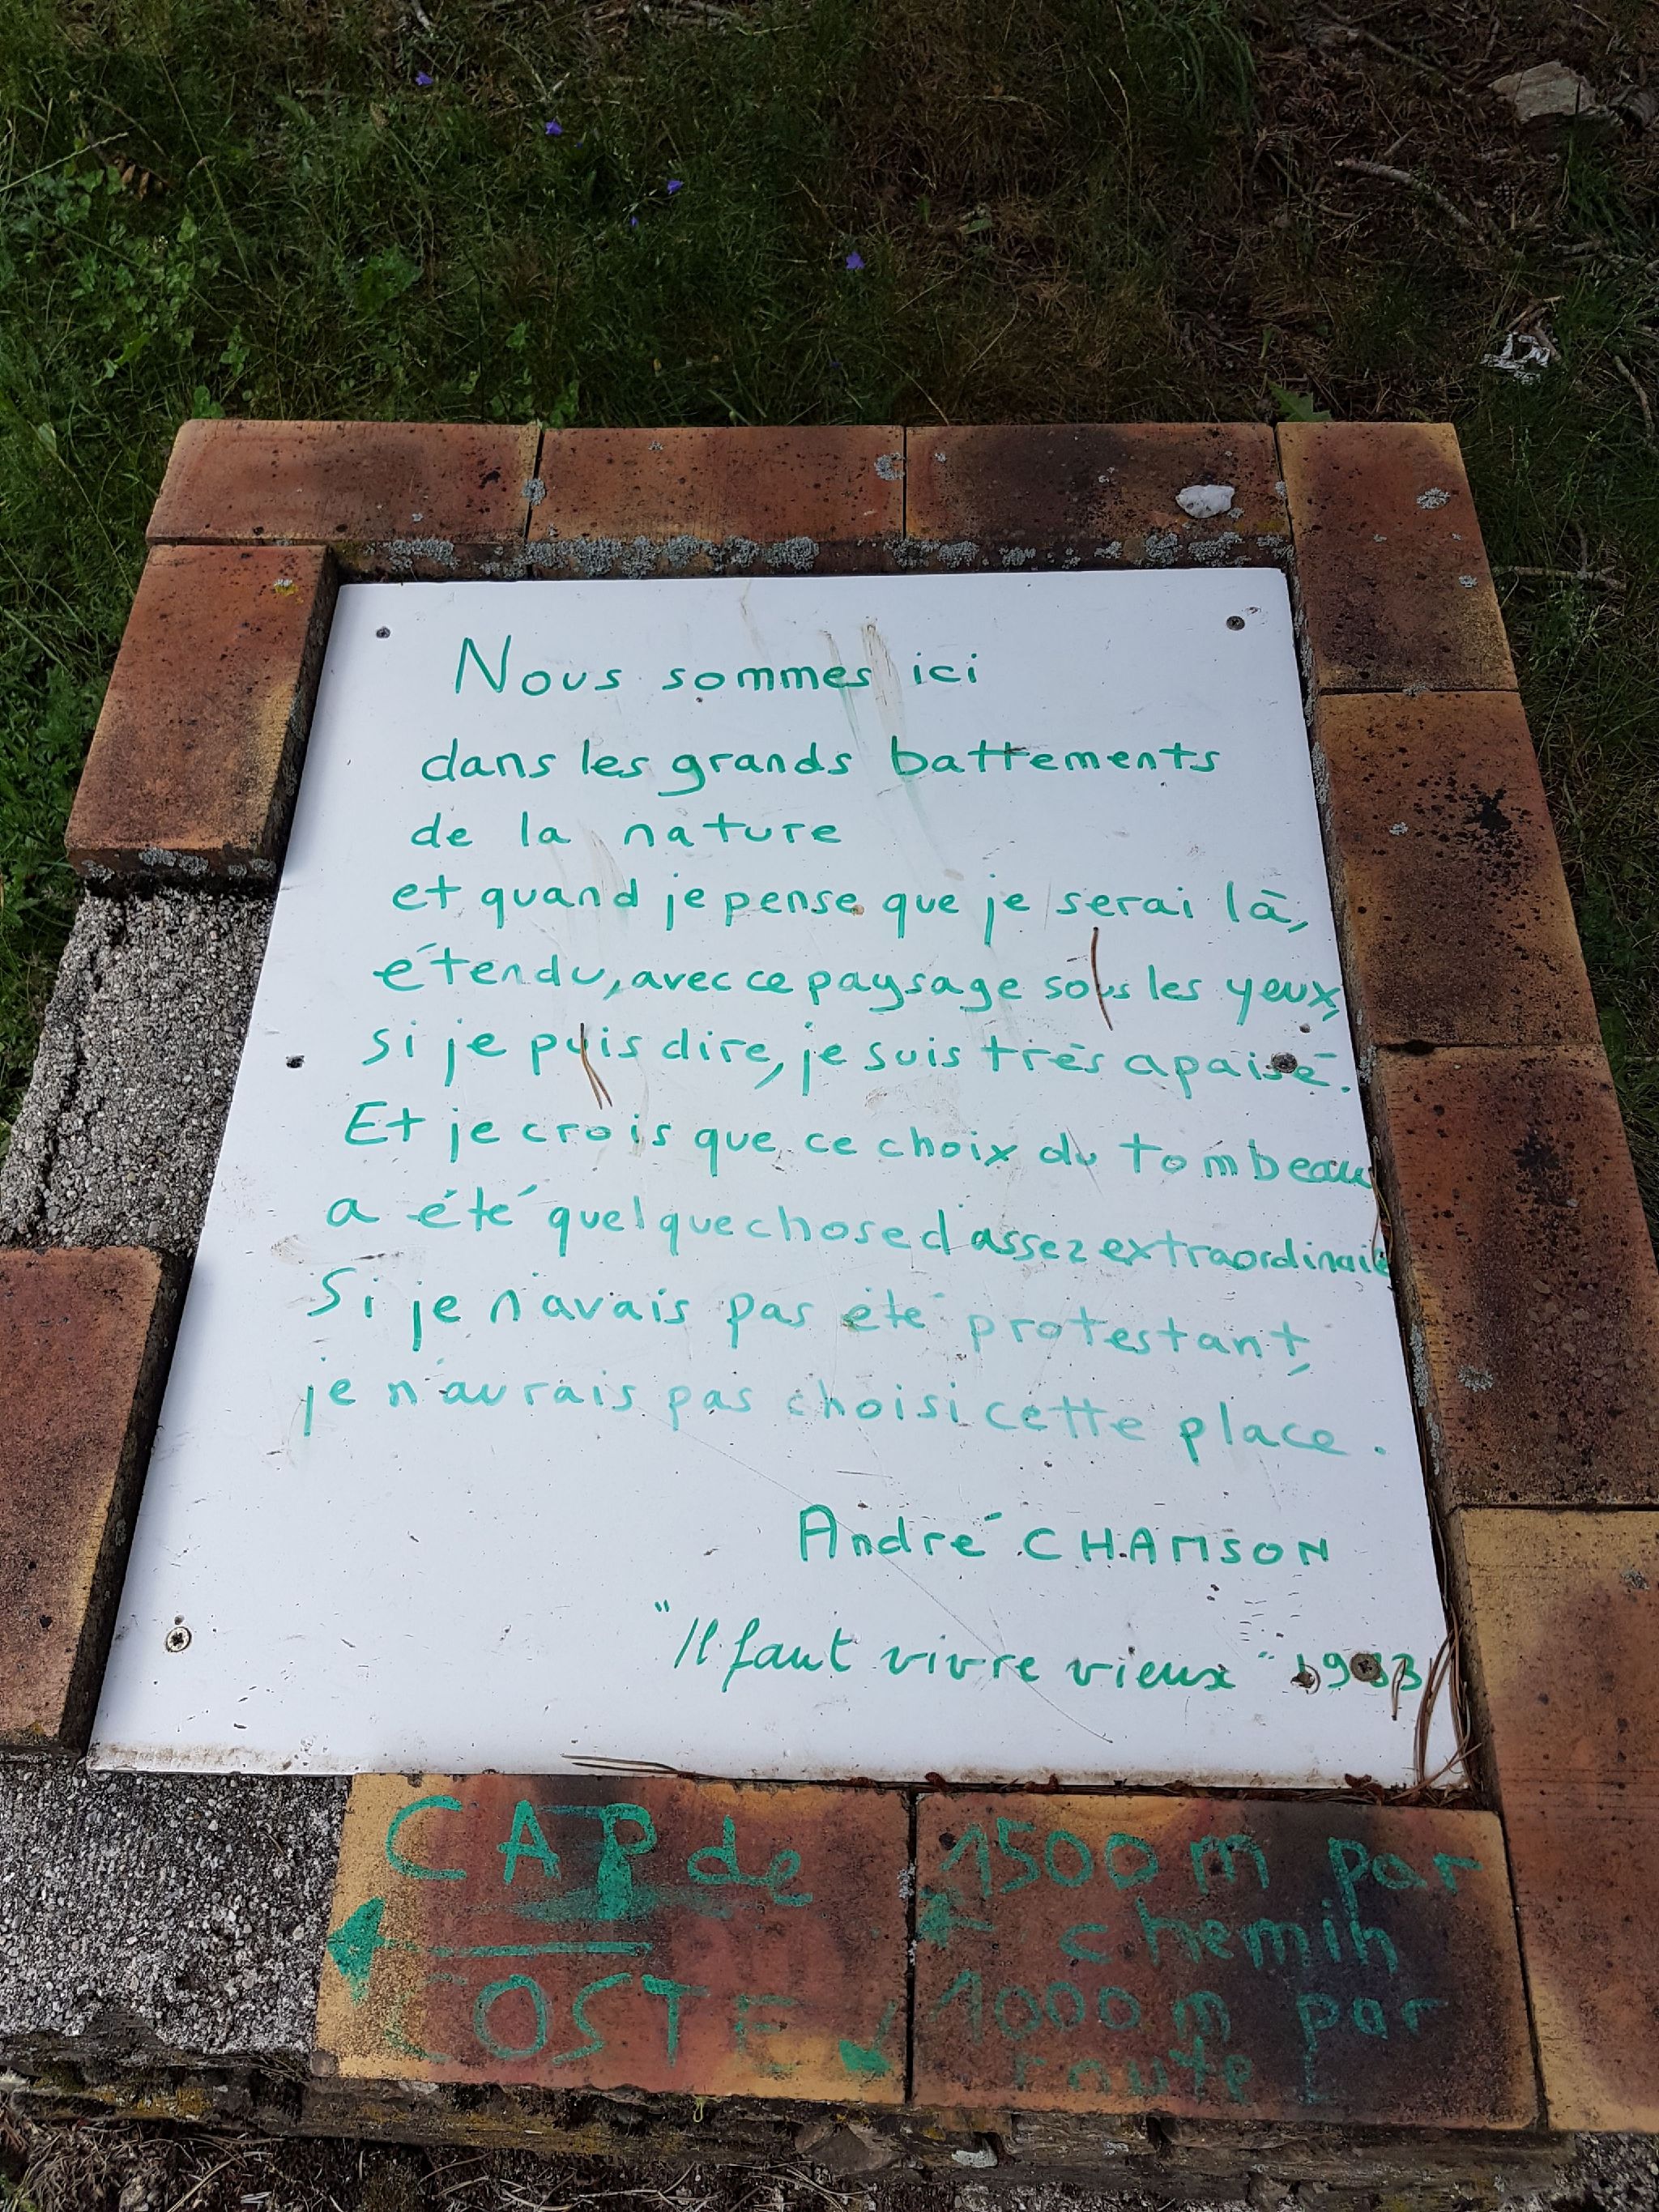 Nous sommes ici
dans les grands battements
de la nature
et quand je pense que je serai là,
étendu, avec ce paysage sous les yeux,
si je puis dire, je suis très apaisé.
Et je crois que ce choix du tombeau
a été quelque chose d'assez extraordinaire
Si je n'avais pas été protestant,
je n'aurais pas choisi cette place.
André CHAMSON
"Il faut vivre vieux" 1983
CAP de
COSTE
1500 m par
chemin
1000 m par
route